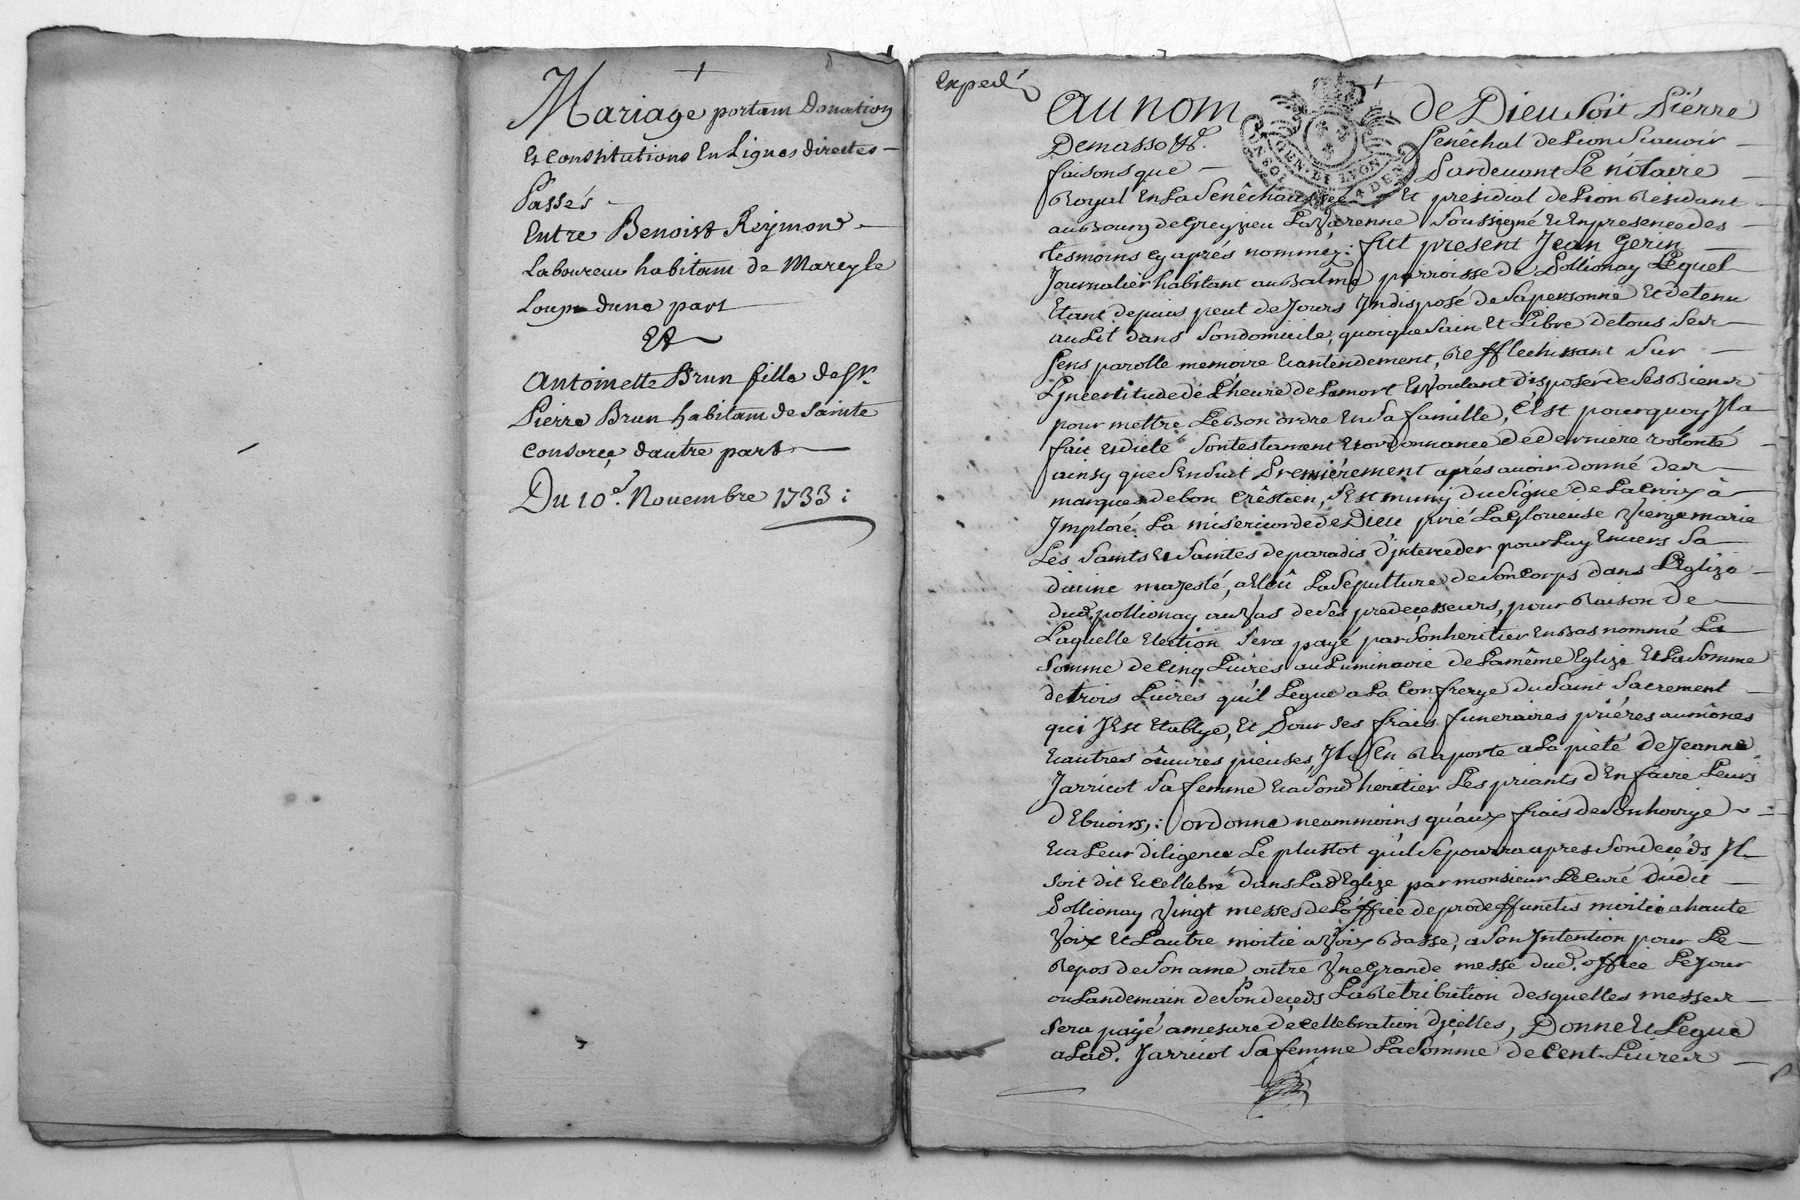 Mariage portant Donation
Et Constitutions En Lignes directes
Passés
Entre Benoist Reymond
Laboureur habitant de Marcy le
Loup dune part
Et
Antoinette Brun fille de Sr.
Pierre Brun habitant de Sainte
Consorce dautre part
Du 10e. Novembre 1733 :
Expedié
Au nom de Dieu soit Piérre
Demasso &a. Senêchal de Lion Scavoir
faisons que Pardevant Le nôtaire
Royal En La Senêchaussée Et présidial de Lion Residant
au Bourg de Grezieu La Varenne soussigné Et En presence des
tesmoins cy aprés nommez : fut present Jean Gerin
Journalier habitant au Balme parroisse de Pollionay Lequel
Etant depuis peut de Jours Jndisposé de sa personne Et detenu
au Lit dans son domicile, quoique sain Et Libre de tous ses
sens parolle memoire Et antendement, Refflechissant sur
L'jncertitude de L'heure de La mort Et Voulant disposer de ses Biens
pour mettre Le Bon ordre En sa famille, C'Est pourquoy Jl a
fait Et dicté son testament Et ordonnance de derniere volonté
ainsy que s'Ensuit Premiérement aprés avoir donné des
marques de bon Crêstien, s'Est muny du signe de La Croix à
Jmploré La misericorde de Dieu prié La Glorieuse Vierge marie
Les saints Et saintes de paradis d'jnterceder pour Luy Envers sa
divine majesté, a Eleû La sepulture de son Corps dans L'Eglize
dud. pollionay au Vas de ses predecesseurs, pour Raison de
Laquelle Election sera payé par son heritier En Bas nommé La
somme de Cinq Livres au Luminaire de La même Eglize Et La somme
de trois Livres qu'il Legue a La Confrerye du saint sacrement
qui J Est Etablye, Et Pour ses frais funeraires priéres aumônes
Et autres ôeuvres pieuses, Jl s'En Raporte a La pieté de Jeanne
Jarricot sa femme Et a sond. heritier Les priants d'En faire Leurs
d'Ebvoirs, : ordonne neanmoins qu'aux frais de son hoirye
Et a Leur diligence Le plustot qu'il se pourra apres son decéds Jl
soit dit Et cellebré dans Lad. Eglize par monsieur Le Curé dudit
Pollionay Vingt messes de L'office de pro deffunctis moitié a haute
Voix Et L'autre moitié a Voix Basse, a son Jntention pour Le
Repos de son ame, outre Vne Grande messe dud. office Le Jour
ou Landemain de son deçeds La Retribution desquelles messes
sera payé a mesure de cellebration d'jcelles, Donne Et Legue
a Lad. Jarricot sa femme La somme de Cent Livres